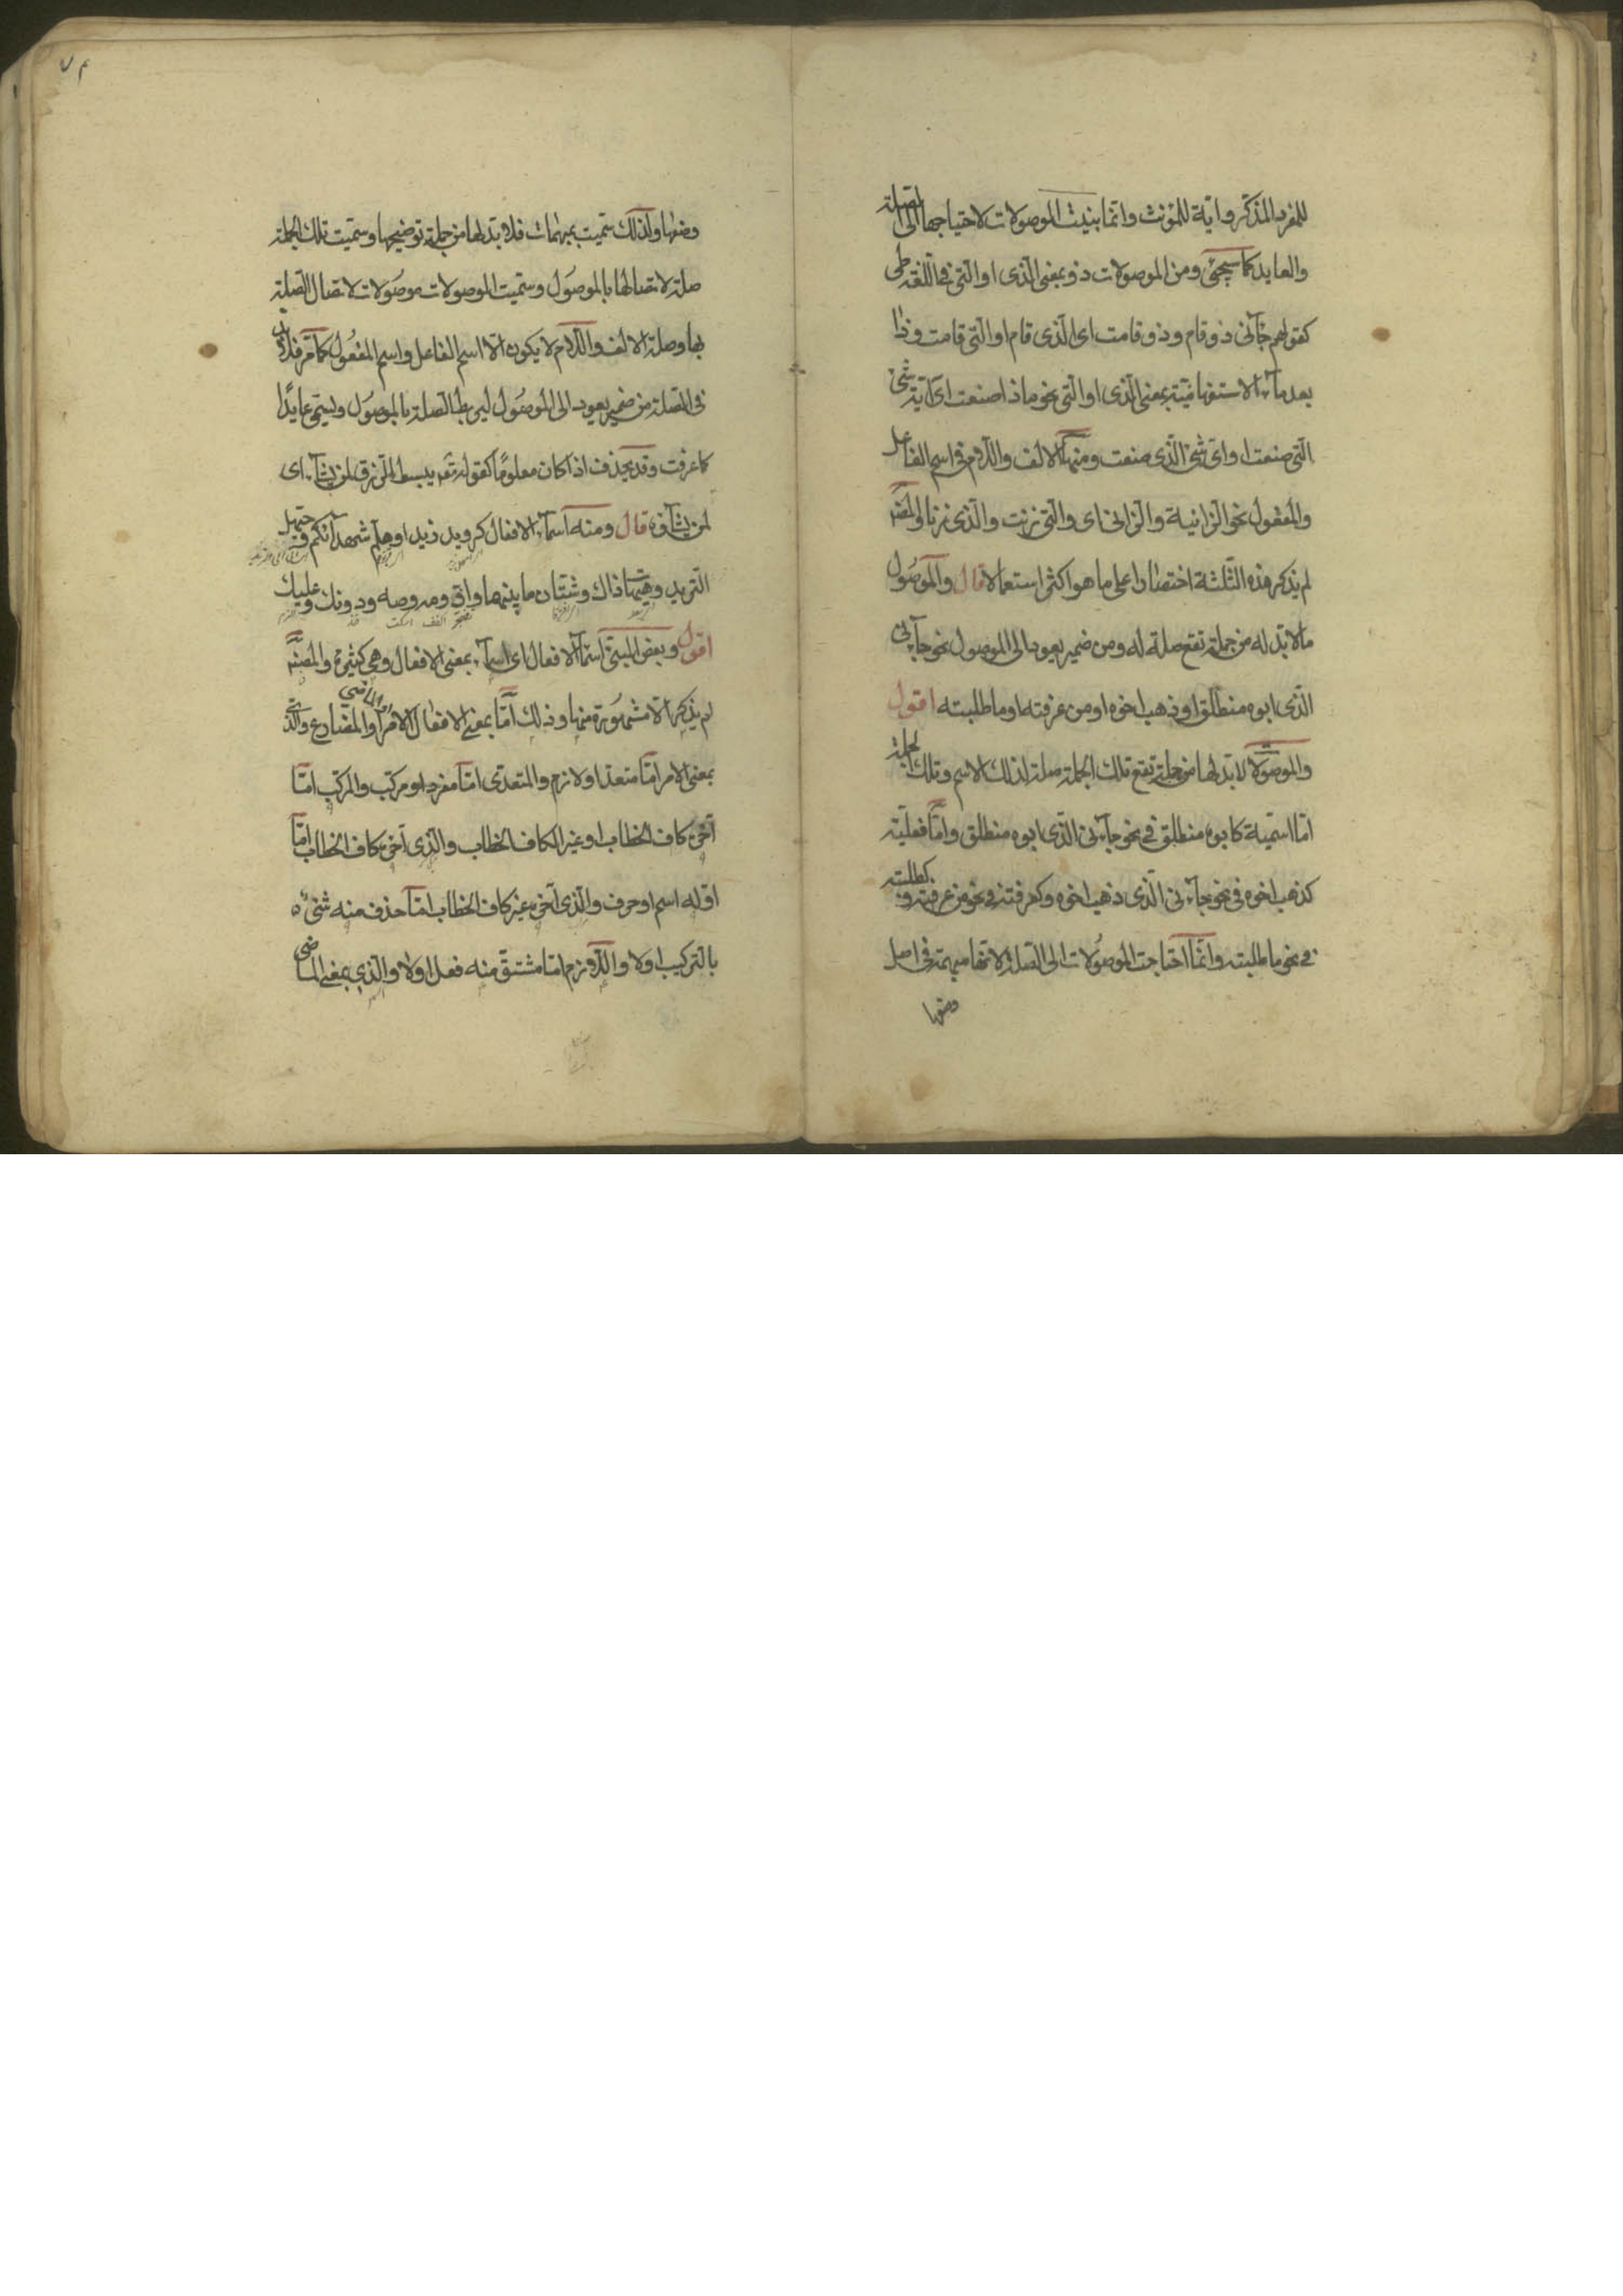 للمفرد المذكر واية للمؤنث وانما بنيت الموصولات لاحتياجها الى الصلة
والعايد كما سيجئ ومن الموصولات ذو بمعنى الذى او التى فى اللغة طى
كقولهم جآئنى ذو قام وذو قامت اى الذى قام او التى قامت وذا
بعد مآء الاستفهاميّة بمعنى الذى او التى نحو ماذا صنعت اى اية شئ
التى صنعت او اى شئ الذى صنعت ومنها الالف واللام فى اسم الفاعل
والمفعول نحو الزانية والزانى اى والتى زنت والذى زنا والمصنّف
لم يذكر هذه الثلثة اختصارا على ما هو اكثر استعمالا قال والموصول
مالا بد له من جملة تقع صلة له ومن ضمير يعود الى الموصول نحو جآئنى
الذى ابوه منطلق او ذهب اخوه او من عرفته او ما طلبته اقول
والموصولات لا بد لها من جملة تقع تلك الجملة صلة لذلك الاسم وتلك الجملة
امّا اسميّة كابوه منطلق فى نحو جآءنى الذى ابوه منطلق وامّا فعليّة
كذهب اخوه فى نحو جآءنى الذى ذهب اخوه وكعرفته فى نحو من عرفته وكطلبته
فى نحو ما طلبته وانّما احتاجت الموصولات الى الصلة لانها مبهمة فى اصل
وضعها
وضعها ولذلك سمّيت بمبهمات فلا بد لها من جملة توضيحها وسمّيت تلك الجملة
صلة لاتصالها بالموصول وسمّيت الموصولات موصولات لاتصال الصلة
بها وصلة الالف واللام لا يكون الا اسم الفاعل واسم المفعول كما مر فلا بد
فى الصلة من ضمير يعود الى الموصول ليربط الصلة بالموصول ويسمّى عايدًا
كما عرفت وقد يحذف اذا كان معلومًا كقوله تعه يبسط الرزق لمن يشآء اى
لمن يشآؤه قال ومنه اسمآء الافعال كرويد زيدا وهلم شهدآئكم وحيهل
الثريد وهيهات ذاك وشتان ما بينهما واف ومه وصه ودونك وعليك
اقول وبعض المبنى اسمآء الافعال اى اسمآء بمعنى الافعال وهى كثيرة والمصنّف
لم يذكر الا مشهورة منها وذلك امّا بمعنى الافعال الامر او الماضى او المضارع والذى
بمعنى الامر امّا متعد او لازم والمتعدى امّا مفرد او مركب والمركب امّا
آخره كاف الخطاب او غير الكاف الخطاب والذى آخره كاف الخطاب امّا
اوله اسم او حرف والذى آخره غير كاف الخطاب امّا حذف منه شئ
بالتركيب او لا واللازم امّا مشتق منه فعل او لا والذى بمعنى الماضى